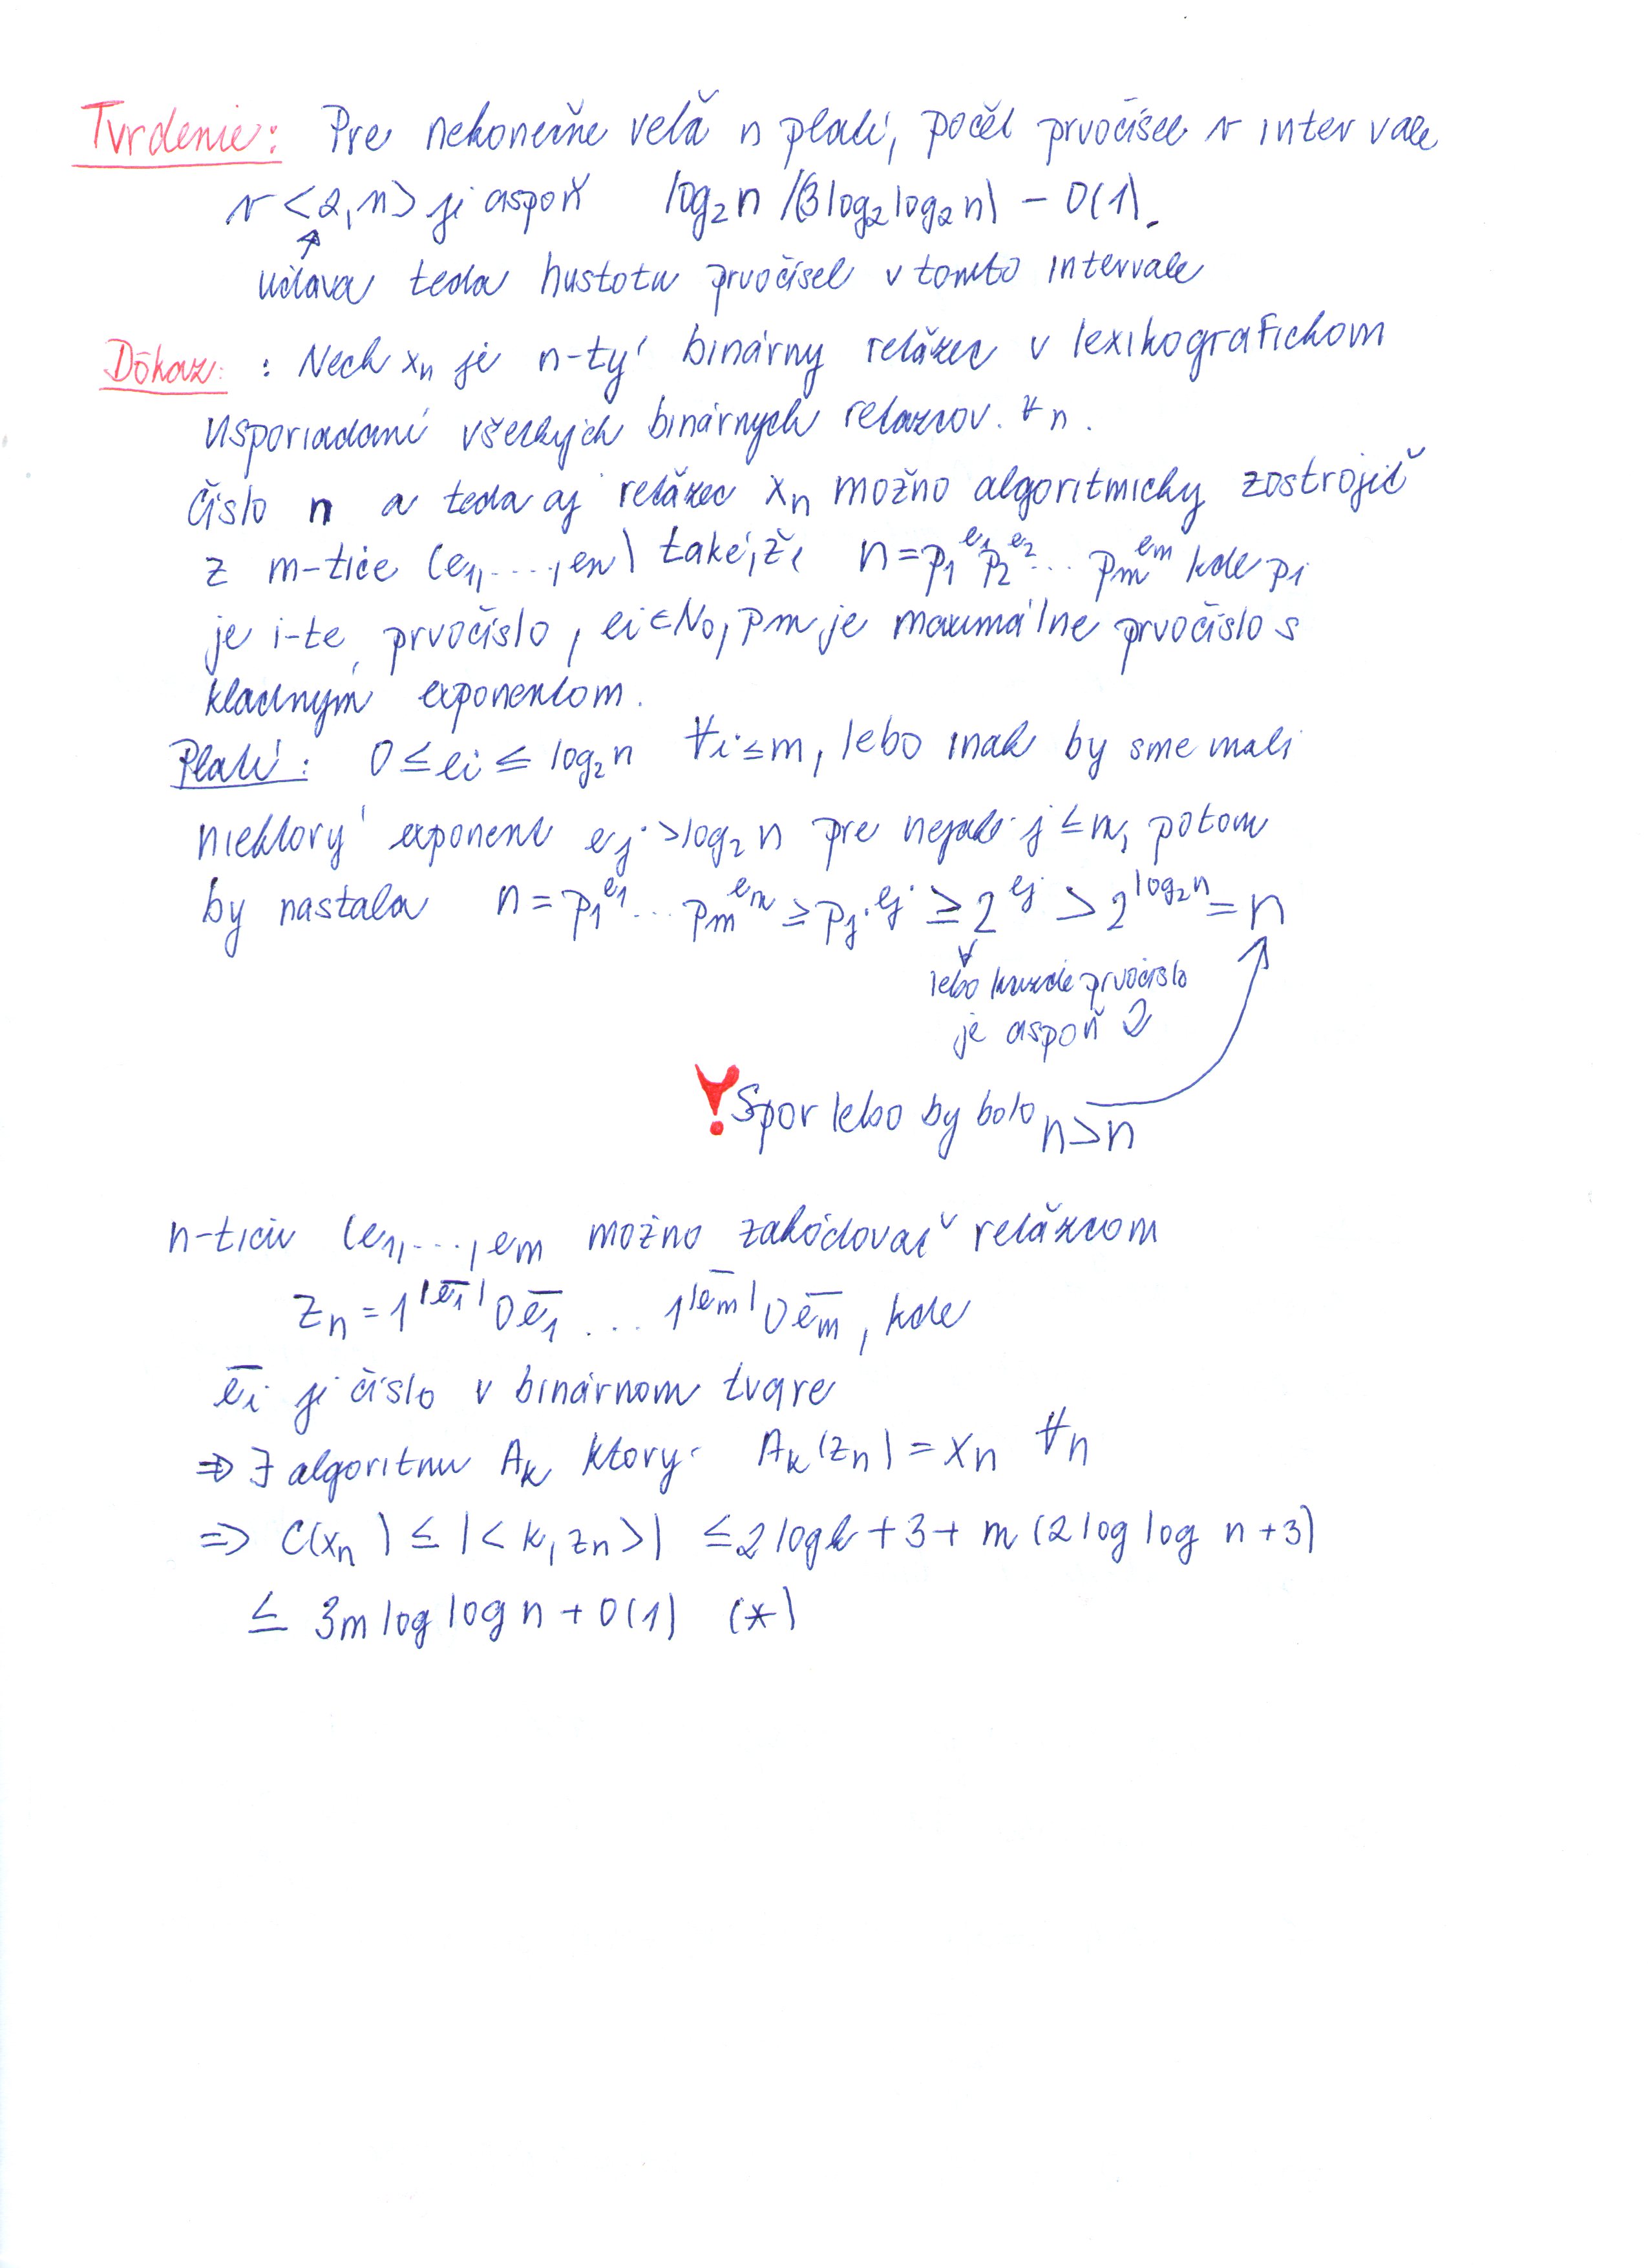 Tvrdenie: Pre nekonečne veľa n platí, počet prvočísel v intervale
v <2,n> je aspoň log₂n /(3log₂log₂n) – O(1).
↑
udáva teda hustotu prvočísel v tomto intervale
Dôkaz: : Nech xₙ je n-tý binárny reťazec v lexikografickom
usporiadaní všetkých binárnych reťazcov. ∀n.
číslo n a teda aj reťazec xₙ možno algoritmicky zostrojiť
z m-tice (e₁,....,eₙ) takej, že n = p₁^e₁ p₂^e₂ ... pₘ^eₘ kde pᵢ
je i-te prvočíslo, eᵢ ∈ N₀, pₘ je maximálne prvočíslo s
kladným exponentom.
Platí: 0 ≤ eᵢ ≤ log₂n ∀i ≤ m, lebo inak by sme mali
niektorý exponent eⱼ > log₂n pre nejaké j ≤ m, potom
by nastala n = p₁^e₁ ... pₘ^eₘ ≥ pⱼ^eⱼ ≥ 2^eⱼ > 2^log₂n = n
lebo každé prvočíslo
je aspoň 2
! Spor lebo by bolo n>n
n-ticu (e₁,....,eₘ možno zakódovať reťazcom
zₙ = 1^|e̅₁| 0 e̅₁ ... 1^|e̅ₘ| 0 e̅ₘ, kde
e̅ᵢ je číslo v binárnom tvare
⇒ ∃ algoritmu Aₖ ktorý Aₖ(zₙ) = xₙ ∀n
⇒ C(xₙ) ≤ |<k, zₙ>| ≤ 2 log k + 3 + m (2 log log n + 3)
≤ 3m log log n + O(1) (*)